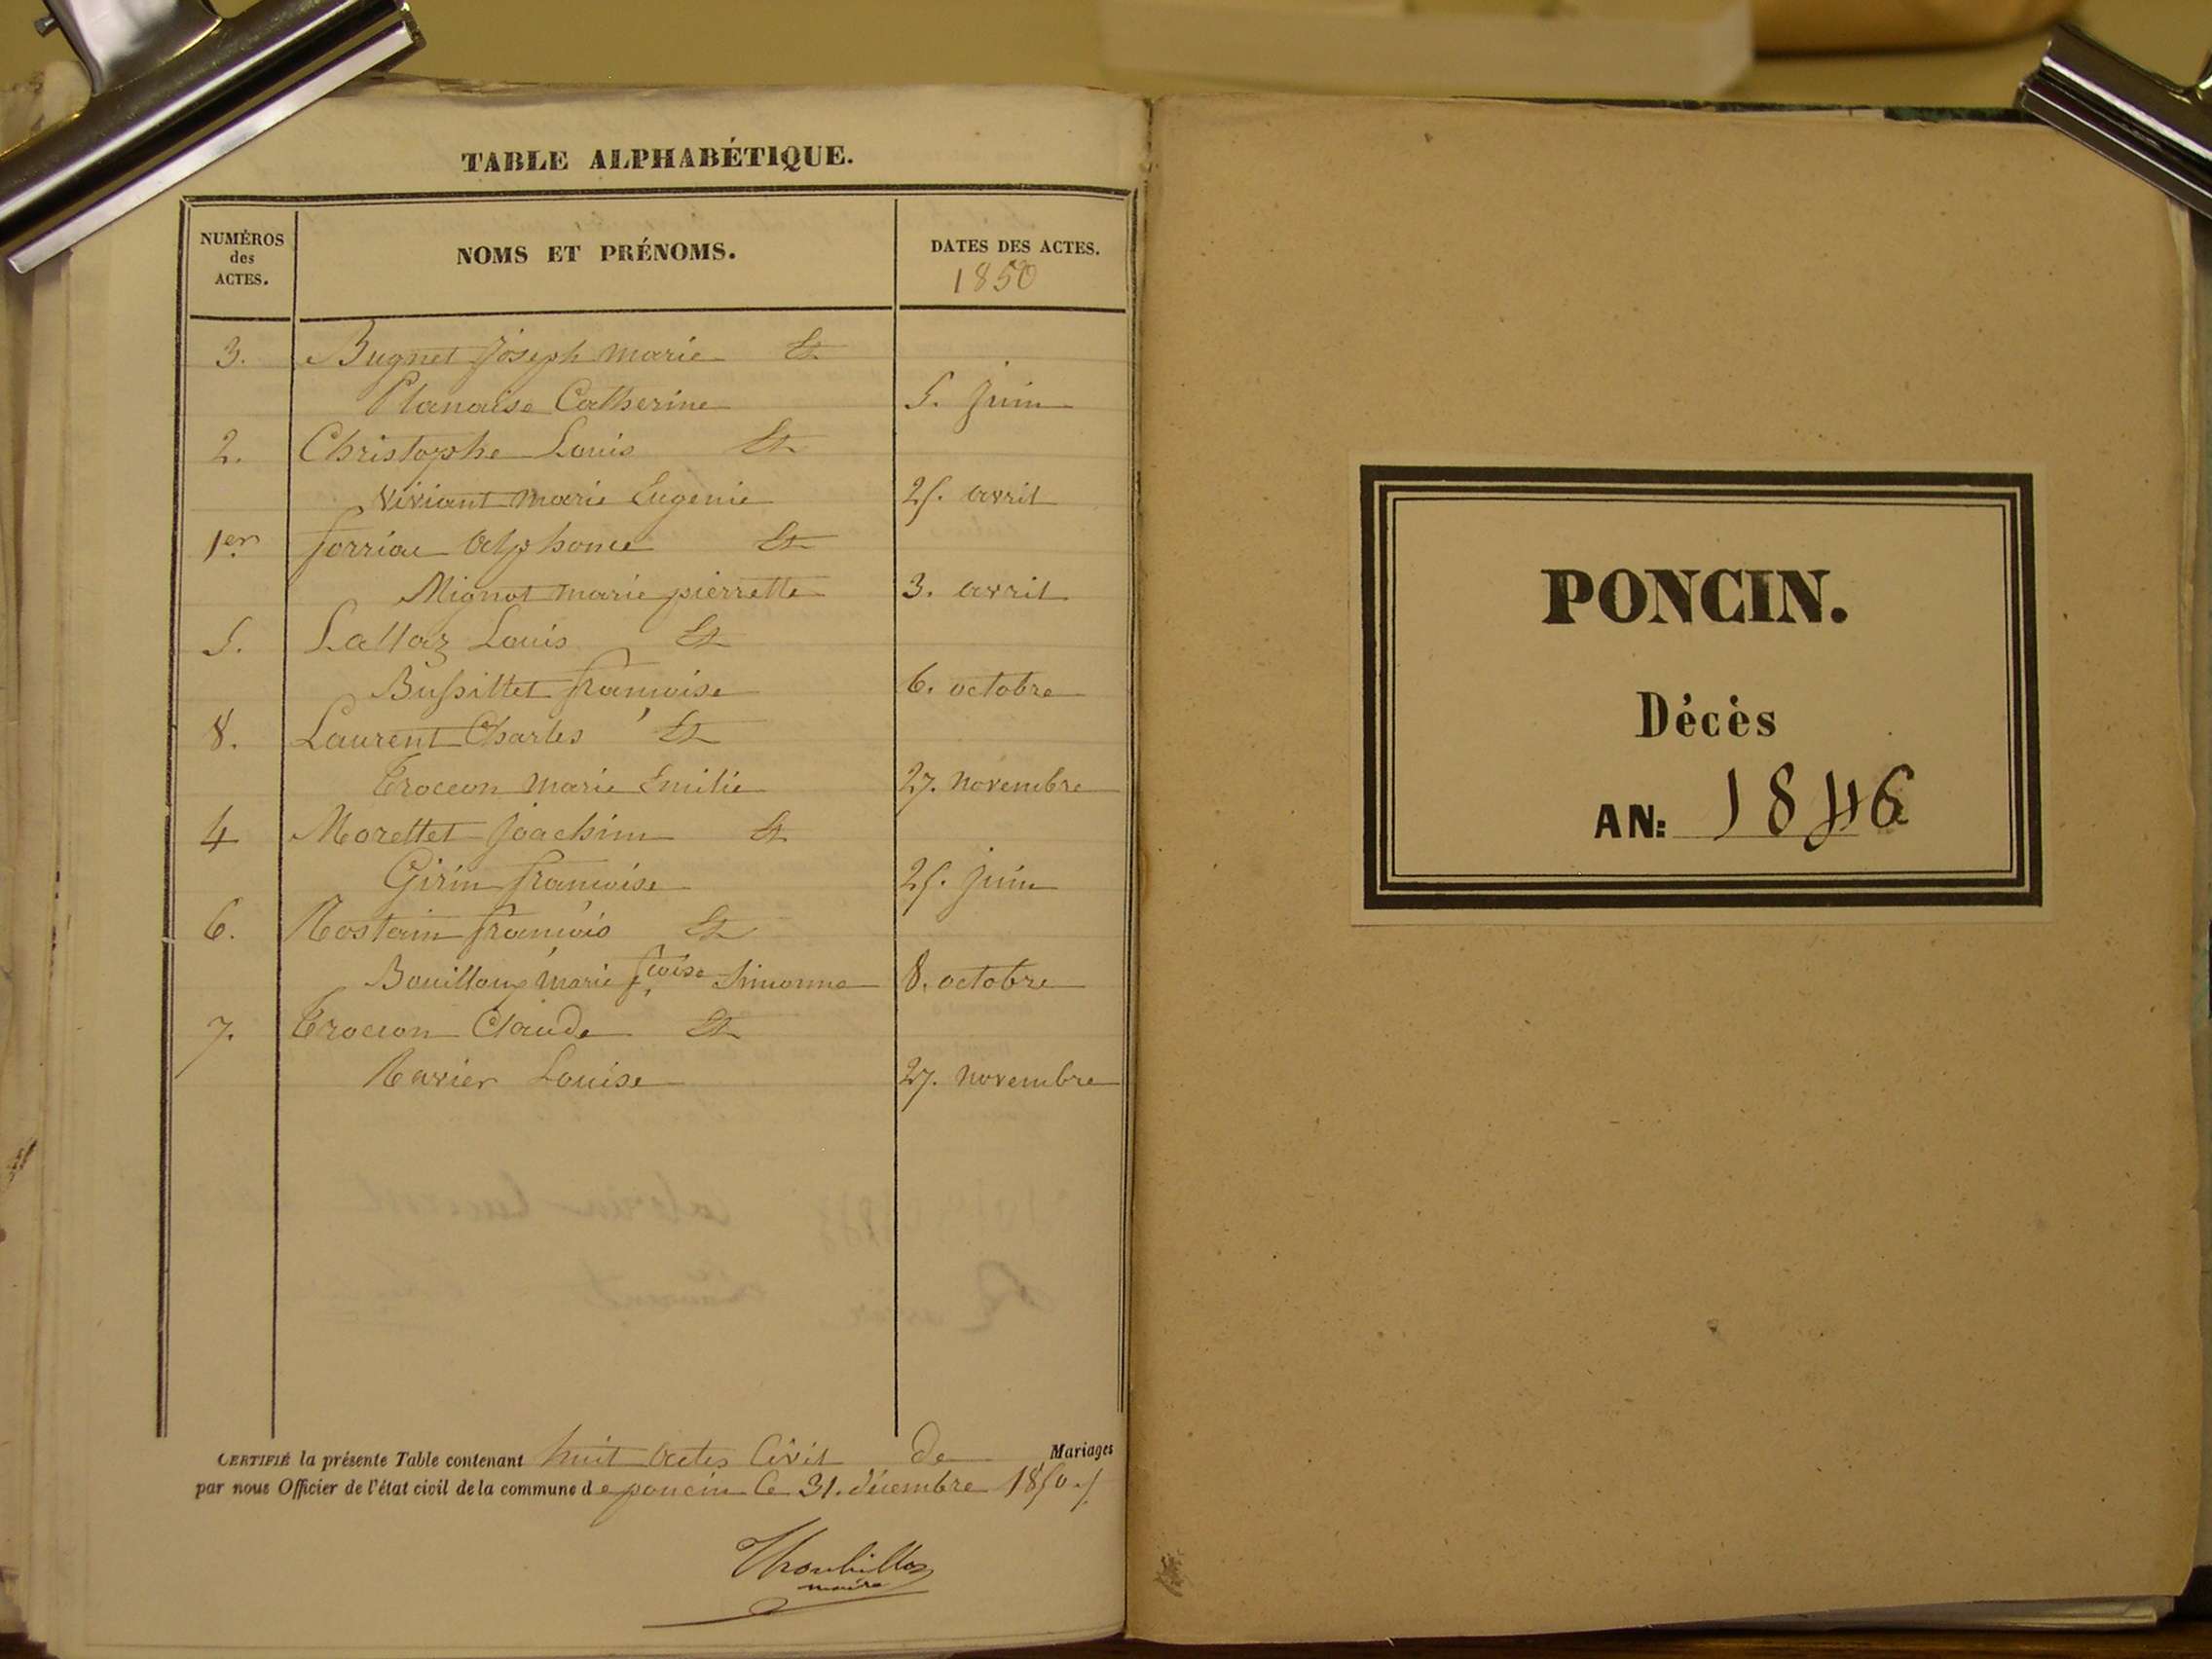 TABLE ALPHABÉTIQUE.
NUMÉROS des ACTES.
NOMS ET PRÉNOMS.
DATES DES ACTES.
1850
3. Bugnet Joseph marie Et
Planaise Catherine 5. Juin
2. Christophe Louis Et
Viviant marie Eugenie 25. avril
1er Alphonse Et
Mignot marie pierrette 3. avril
5. Lallaz Louis Et
Bussillet françoise 6. octobre
8. Laurent Charles Et
Troccon marie Emilie 27. novembre
4 Morettet Joachim Et
Girin françoise 25. Juin
6. Rostain françois Et
Bouilloux marie fçoise Simonne 8. octobre
7. Troccon Claude Et
Ravier Louise 27. novembre
CERTIFIÉ la présente Table contenant huit actes Civil de Mariages
par nous Officier de l'état civil de la commune de poncin le 31. décembre 1850
maire
PONCIN.
Décès
AN: 1846